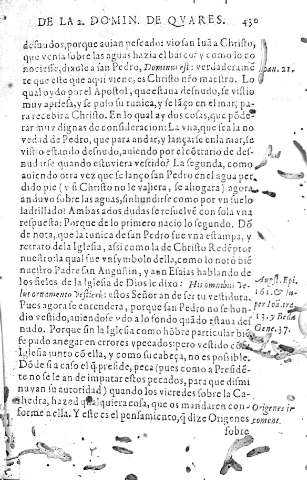 DE LA 2. DOMIN. DE QVARES. 430
desnudos, porque auian pescado: vio san Iuã a Christo,
que venia sobre las aguas hazia el barco: y como lo co
nociesse, dixole a san Pedro, Dominus est: verdaderamẽ
te que este que aqui viene, es Christo nr̃o maestro. Lo
qual oydo por el Apostol, que estaua desnudo, se vistio
muy apriesa, y se puso su tunica, y se lãço en el mar, pa-
ra recebir a Christo. En lo qual ay dos cosas, que põde-
rar muy dignas de consideracion: La vna, que sea la no
vedad de Pedro, que para andar, y lançarse en la mar, se
vistio estando desnudo, auiendo por el cõtrario de desnu
dirse quando estuuiera vestido? La segunda, como
auiendo otra vez que se lanço san Pedro en el agua per
dido pie (y si Christo no le valiera, se ahogara) agora
anduuo sobre las aguas, sin hundirse como por vn suelo
ladrillado? Ambas a dos dudas se resuelvẽ con sola vna
respuesta: Porque de lo primero nacio lo segundo. Dõ
de nota, que la tunica de san Pedro fue vna estampa, y
retrato de la Iglesia, assi como la de Christo Redẽptor
nuestro: la qual fue vn symbolo della, como lo notò biẽ
nuestro Padre san Augustin, y aun Esaias hablando de
los fieles de la Iglesia de Dios le dixo: His omnibus ve-
lut ornamento vestieris: estos Señor an de ser tu vestidura.
Pues agora se entendera, porque san Pedro no se hun-
dio vestido, auiendose ydo a lo fondo quãdo estaua des-
nudo. Porque sin la Iglesia como hõbre particular biẽ
se pudo anegar en errores y pecados: pero vestido cõ la
Iglesia junto cõ ella, y como su cabeça, no es possible.
Dõde si a caso el q̃ preside, peca (pues como a Presidẽ-
te no se le an de imputar estos pecados, para que dismi
nuyan su autoridad) quando los vieredes sobre la Ca-
thedra, hazed qualquiera cosa, que os mandaren con-
forme a ella. Y este es el pensamiento, q̃ dize Origenes
sobre
Ioan. 21.
August. Epi.
161. & su-
per Ioã. tra.
13. y Beda
Gene. 37.
Origenes in
coment.